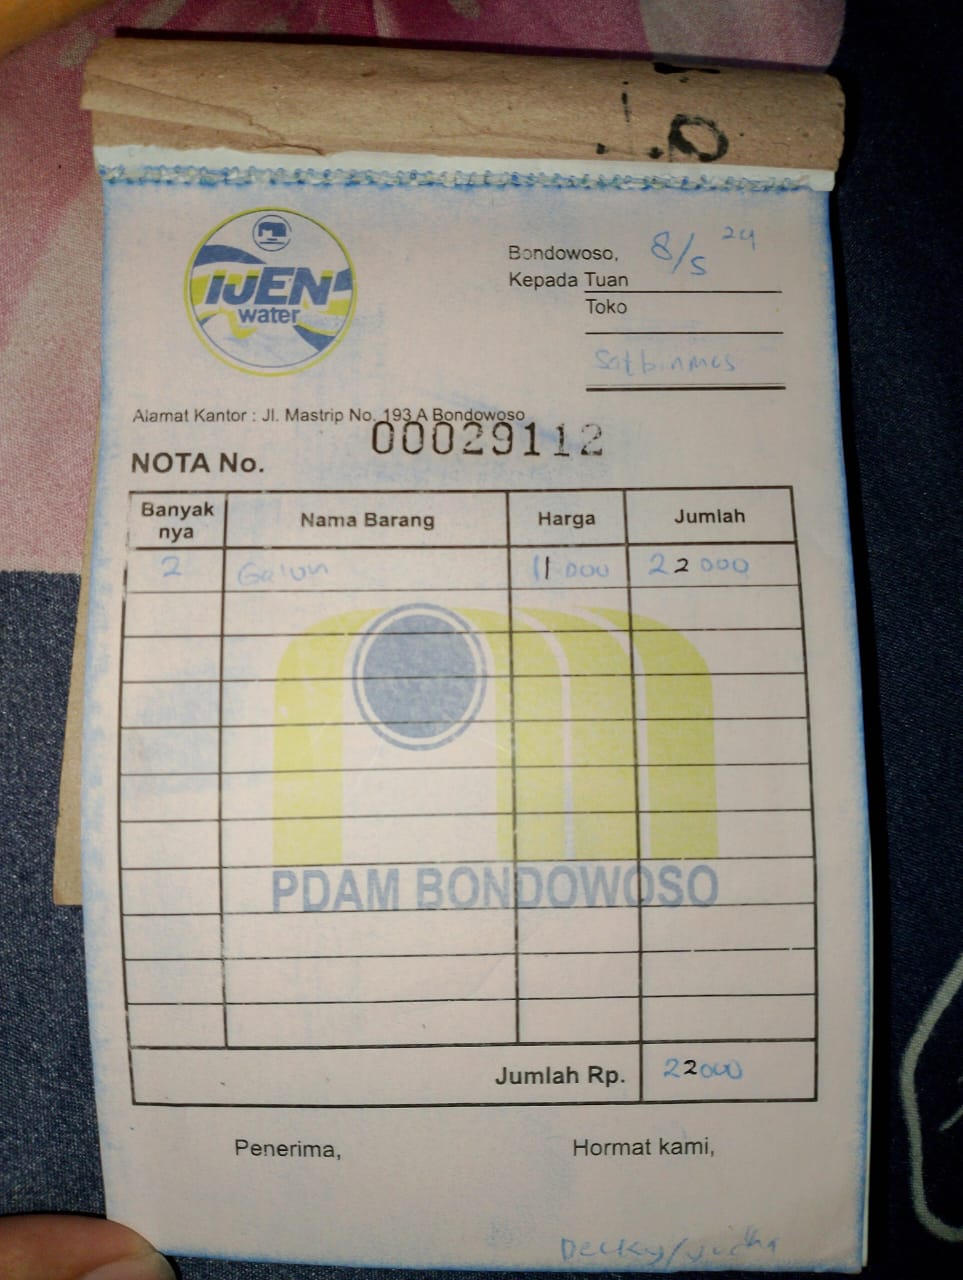 IJEN
water
Bondowoso, 8/5 24
Kepada Tuan
Toko
Satbinmas
Alamat Kantor : Jl. Mastrip No. 193 A Bondowoso
NOTA No. 00029112
Banyak nya Nama Barang Harga Jumlah
2 Galon 11.000 22000
PDAM BONDOWOSO
Jumlah Rp. 22000
Penerima, Hormat kami,
Decky/Judha